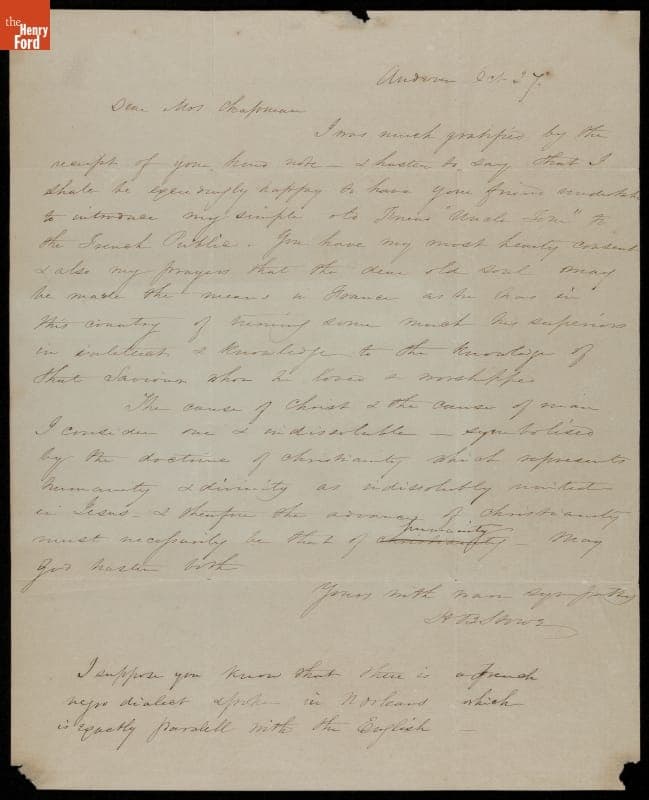 the
Henry
Ford
Andover Oct. 27.
Dear Mrs Chapman
I was much gratified by the
receipt of your kind note - & hasten to say that I
shall be exceedingly happy to have your friend undertake
to introduce my simple old friend "Uncle Tom" to
the French Public. You have my most hearty consent
& also my prayers that the dear old soul may
be made the means in France as he has in
this country of turning some much his superiors
in intellect & knowledge to the knowledge of
that Saviour whom he loved & worshipped
The cause of Christ & the cause of man
I consider one & indissoluble - symbolised
by the doctrine of christianity which represents
humanity & divinity as indissolubly united
in Jesus - & therefore the advance of christianity
humanity
must necessarily be that of christianity - May
God hasten both
Yours with warm sympathy
H B Stowe
I suppose you know that there is a french
negro dialect spoken in N Orleans which
is exactly parallell with the English -